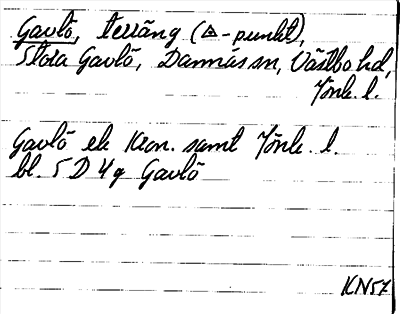 Gavlö, terräng (△-punkt),
Stora Gavlö, Dannäs sn, Västbo hd,
Jönk. l.
Gavlö ek Kron. samt Jönk. l.
bl. 5 D 4 g Gavlö
KN57